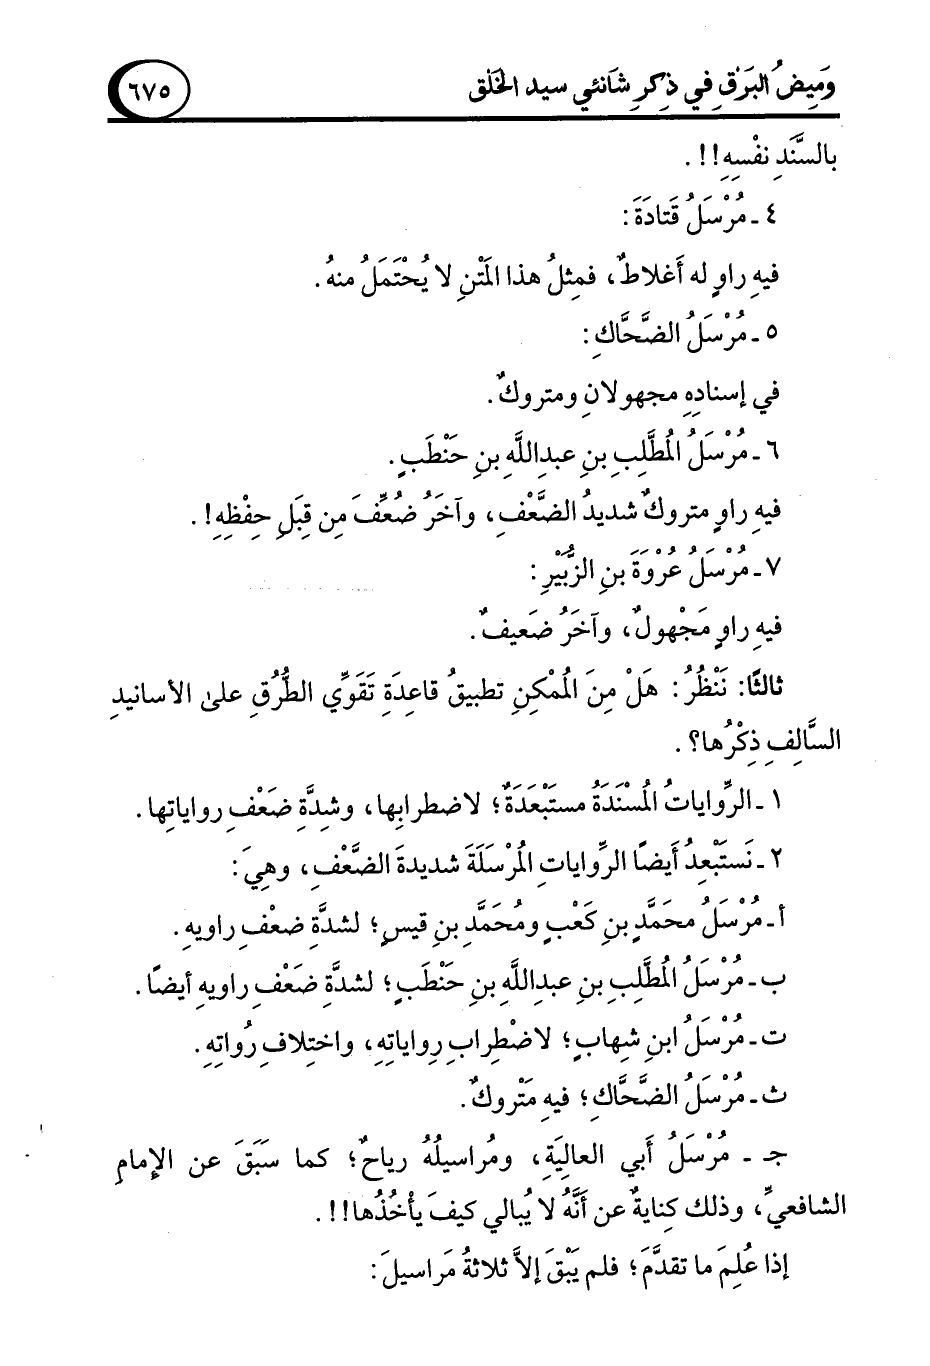 وَمِيضُ البَرْقِ في ذِكرِ شَانئي سيد الخَلْق
٦٧٥
بالسَّنَدِ نفْسِهِ!!.
٤ ـ مُرْسَلُ قَتادَةَ:
فيهِ راوٍ له أَغلاطٌ، فمِثلُ هذا المَتْنِ لا يُحْتَمَلُ منهُ.
٥ ـ مُرْسَلُ الضَّحَّاكِ:
في إسنادِهِ مجهولانِ ومتروكٌ.
٦ ـ مُرْسَلُ المُطَّلِبِ بنِ عبدِاللَّهِ بنِ حَنْطَبٍ.
فيهِ راوٍ متروكٌ شديدُ الضَّعْفِ، وآخَرُ ضُعِّفَ مِن قِبَلِ حِفْظِهِ!.
٧ ـ مُرْسَلُ عُرْوَةَ بنِ الزُّبَيْرِ:
فيهِ راوٍ مَجْهولٌ، وآخَرُ ضَعيفٌ.
ثالثًا: نَنْظُرُ: هَلْ مِنَ المُمْكِنِ تطبيقُ قاعدَةِ تَقَوِّي الطُّرُقِ علىٰ الأسانيدِ
السَّالِفِ ذِكْرُها؟.
١ ـ الرِّواياتُ المُسْنَدَةُ مستَبْعَدَةٌ؛ لاضطرابِها، وشدَّةِ ضَعْفِ رواياتِها.
٢ ـ نَستَبْعِدُ أَيضًا الرِّواياتِ المُرْسَلَةَ شديدةَ الضَّعْفِ، وهيَ:
أ ـ مُرْسَلُ محمَّدِ بنِ كَعْبٍ ومُحَمَّدِ بنِ قيسٍ؛ لشدَّةِ ضعْفِ راويهِ.
ب ـ مُرْسَلُ المُطَّلِبِ بنِ عبدِاللَّهِ بنِ حَنْطَبٍ؛ لشدَّةِ ضَعْفِ راويهِ أيضًا.
ت ـ مُرْسَلُ ابنِ شِهابٍ؛ لاضْطِرابِ رواياتِهِ، واختِلافِ رُواتِهِ.
ث ـ مُرْسَلُ الضَّحَّاكِ؛ فيهِ مَتْروكٌ.
جـ ـ مُرْسَلُ أَبي العالِيَةِ، ومُراسيلُهُ رياحٌ؛ كما سَبَقَ عن الإِمامِ
الشافعيِّ، وذلك كنايةٌ عن أَنَّهُ لا يُبالي كيفَ يأْخُذُها!!.
إذا عُلِمَ ما تقدَّمَ؛ فلم يَبْقَ إلاَّ ثلاثةُ مَراسيلَ: